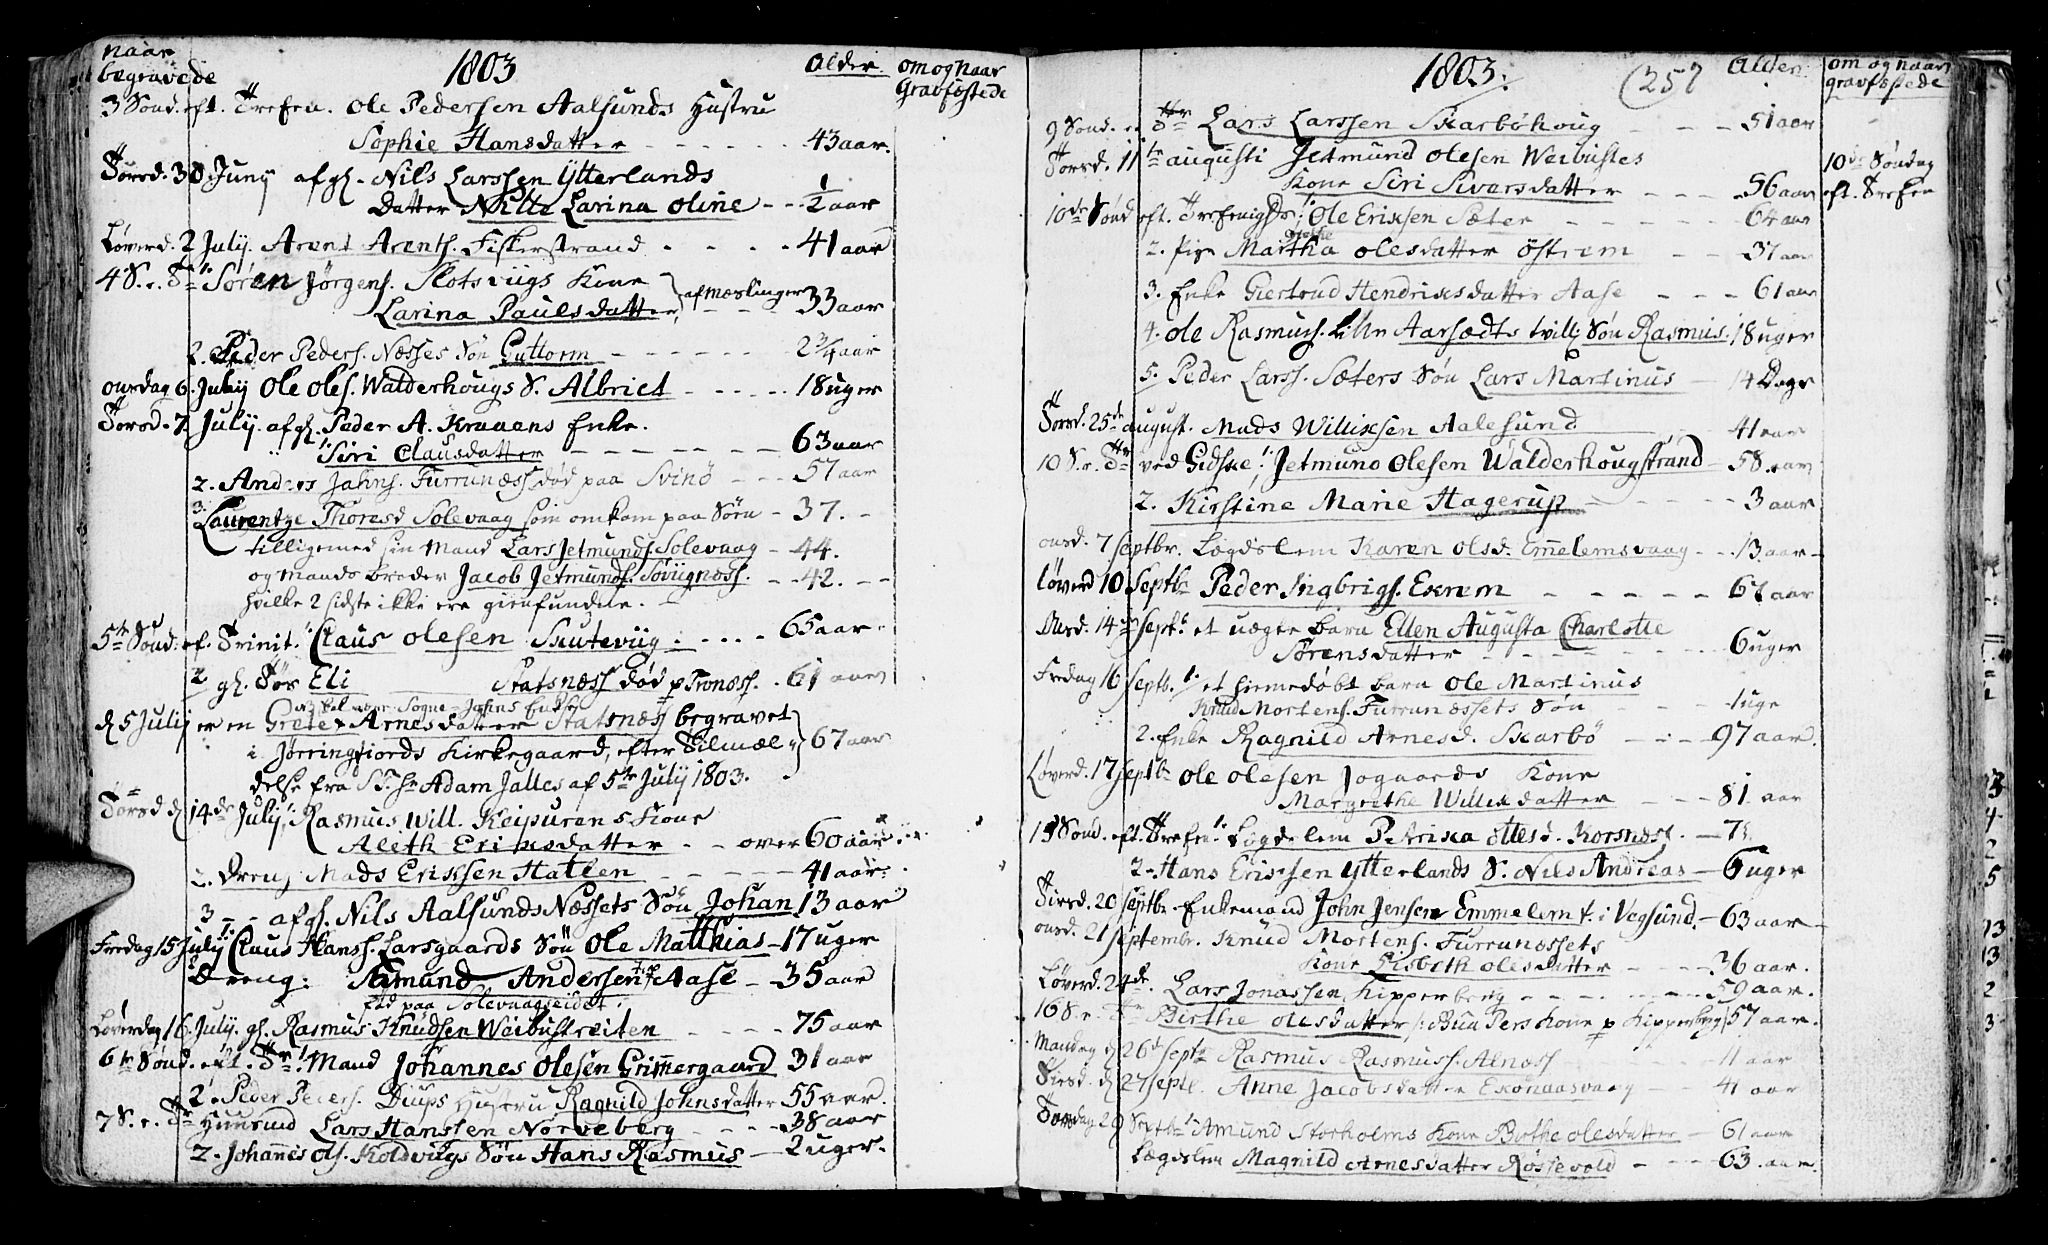 naar
begravede
1803
Alder
om og naar
Gravfæstede
3 Sønd. eft. Trefen. Ole Pedersen Aalsunds Hustru
Sophie Hansdatter - - - - - - 43 aar.
Torsd. 30 Junij afgl. Nils Larssen Ytterlands
Datter Larina Oline - - 1/2 aar
Løverd. 2 Julij. Arent Arents. Fiskerstrand - - - - 41 aar
4 S. e. Tr. 1. Søren Jørgens. Slotsviigs Kone
Larina Paulsdatter, af mæslinger - - - 33 aar
2. Peder Peders. Næsses Søn Guttorm - - - - - - 2 3/4 aar
onsdag 6. Julij Ole Oles. Walderhougs S. Albrict - - - - - 18 uger
Torsd. 7 Julij. afgl. Peder A. Kraaens Enke.
1. Siri Clausdatter - - - - - - - 63 aar
2. Anders Jahns. Furrunæss død paa Svinø - - - 57 aar
3. Laurentze Thoresd Solevaag som omkom paa Søen - 37. -
tilligemed sin Mand Lars Jetmunds. Solevaag - 44.
og Mands broder Jacob Jetmunds. Søviignæss. - - 42. - -
hvilke 2 sidste ikke ere gienfundne. -
5te Sønd: ef. Trinit. 1. Claus Olesen Skuteviig - - - - 65 aar.
2 gl. Tøs Eli Statsnæss død p Tronæss. . 61 aar
kalmaar Sogne-Jahns Enke
d 5 Julij er en Grete Arnesdatter Statsnæss begravet
i Jørringfiords Kirkegaard, efter Tilmæl- 67 aar
delse fra Hr Adam Jalles af 5te Julij 1803.
Torsd d 14de Julij, 1. Rasmus Will. Keipurens Kone
Aleth Eriksdatter - - over 60 aar
2. Dreng Mads Erikssen Hatlen - - - - - - 41 aar.
3 - - afgl. Nils Aalsunds Næssets Søn Johan 13 aar
Fredag 15 Julij 1. Claus Hanss. Larsgaards Søn Ole Matthias - 17 uger
2 Dreng: Amund Andersen Aase - 35 aar
fød paa Solevaagseidet.
Løverdag 16 Julij. gl. Rasmus Knudsen Weibustreiten - - - - 75 aar
6te Sønd. eft. Tr. 1. Mand Johannes Olesen Grimmergaard 31 aar
2. Peder Peders. Diups Hustru Ragnild Johnsdatter 55 aar.
7 S. e. Tr Huusmd Lars Hanssen Nørveberg - - - - - 38 aar
2. Johannes Ols. Koldviigs Søn Hans Rasmus - 2 uger.
1803.
257
Alder
om og naar
gravfæstede
9 Sønd. e. Tr Lars Larssen Skarbøhoug - - - - 51 aar
Torsd. 11te augusti Jetmund Olesen Weibustes
Kone Siri Sivarsdatter - - - - 56 aar
10de Søndag
eft. Trefen
10de Sønd eft. Trefenigh. 1. Ole Erikssen Sæter - - - - 64 aar
2. Pige Martha Olesdatter Østrem - - 37 aar
3. Enke Giertrud Hendriksdatter Aase - - - 61 aar
4. Ole Rasmuss. Aarsædts tvill: Søn Rasmus. 18 uger
5. Peder Larss. Sæters Søn Lars Martinus - 14 Dage
Torsd. 25de august. Mads Willixsen Aalesund - - 41 aar
10 S. e. Tr ved Gidske, 1. Jetmund Olesen Walderhougstrand - 58 aar
2. Kirstine Marie Hagerup - - - - - 3 aar
onsd. 7 septbr. Lægdslem Karen Olsd. Emmelemsvaag - - . 13 aar -
Løverd 10 Septbr Peder Ingbrigs. Eknem - - - - - 67 aar
Onsd. 14 septbr et uægte barn Ellen Augusta Charlotte
Sørensdatter - - - - - - - - 6 uger
Fredag 16 septb. 1. et hiemedøbt barn Ole Martinus
Knud Mortens. Furrunæssets Søn - - - - 1 uge
2. Enke Ragnild Arnesd. Skarbø - - - 97 aar.
Løverd. 17 septb Ole Olesen Jogaards Kone
Margrethe Willixdatter - - - 81 aar
Sønd. eft. Trefen 1. Lægdslem Petrika Ottesd. Korsnæss. - 7
2. Hans Erikssen Ytterlands S. Nils Andreas - 6 uger
Tirsd. 20 septbr. Enkemand John Jensen Emmelem i Vegsund. - 63 aar -
onsd. 21 septembr. Knud Mortens. Furrunæssets
Kone Lisbeth Olesdatter - - - - 36 aar.
Løverd. 24de. Lars Jonassen Kipperberg - - - - - - - 59 aar.
16 S. e. Tr Birthe Olesdatter Pers Kone p Kipperberg 57 aar.
Mandag d 26de septbr Rasmus Rasmuss. Alnæss - - - - 11 aar
Tirsd. d 27 septb. Anne Jacobsdatter Exonaasvaag - - 41 aar
Torsdag 29 Septbr 1. Amund Storholms Kone Birthe Olesdatter - - 61 aar
Lægdslem Magnild Arnesdatter Røssevold - - - - 63. aar.